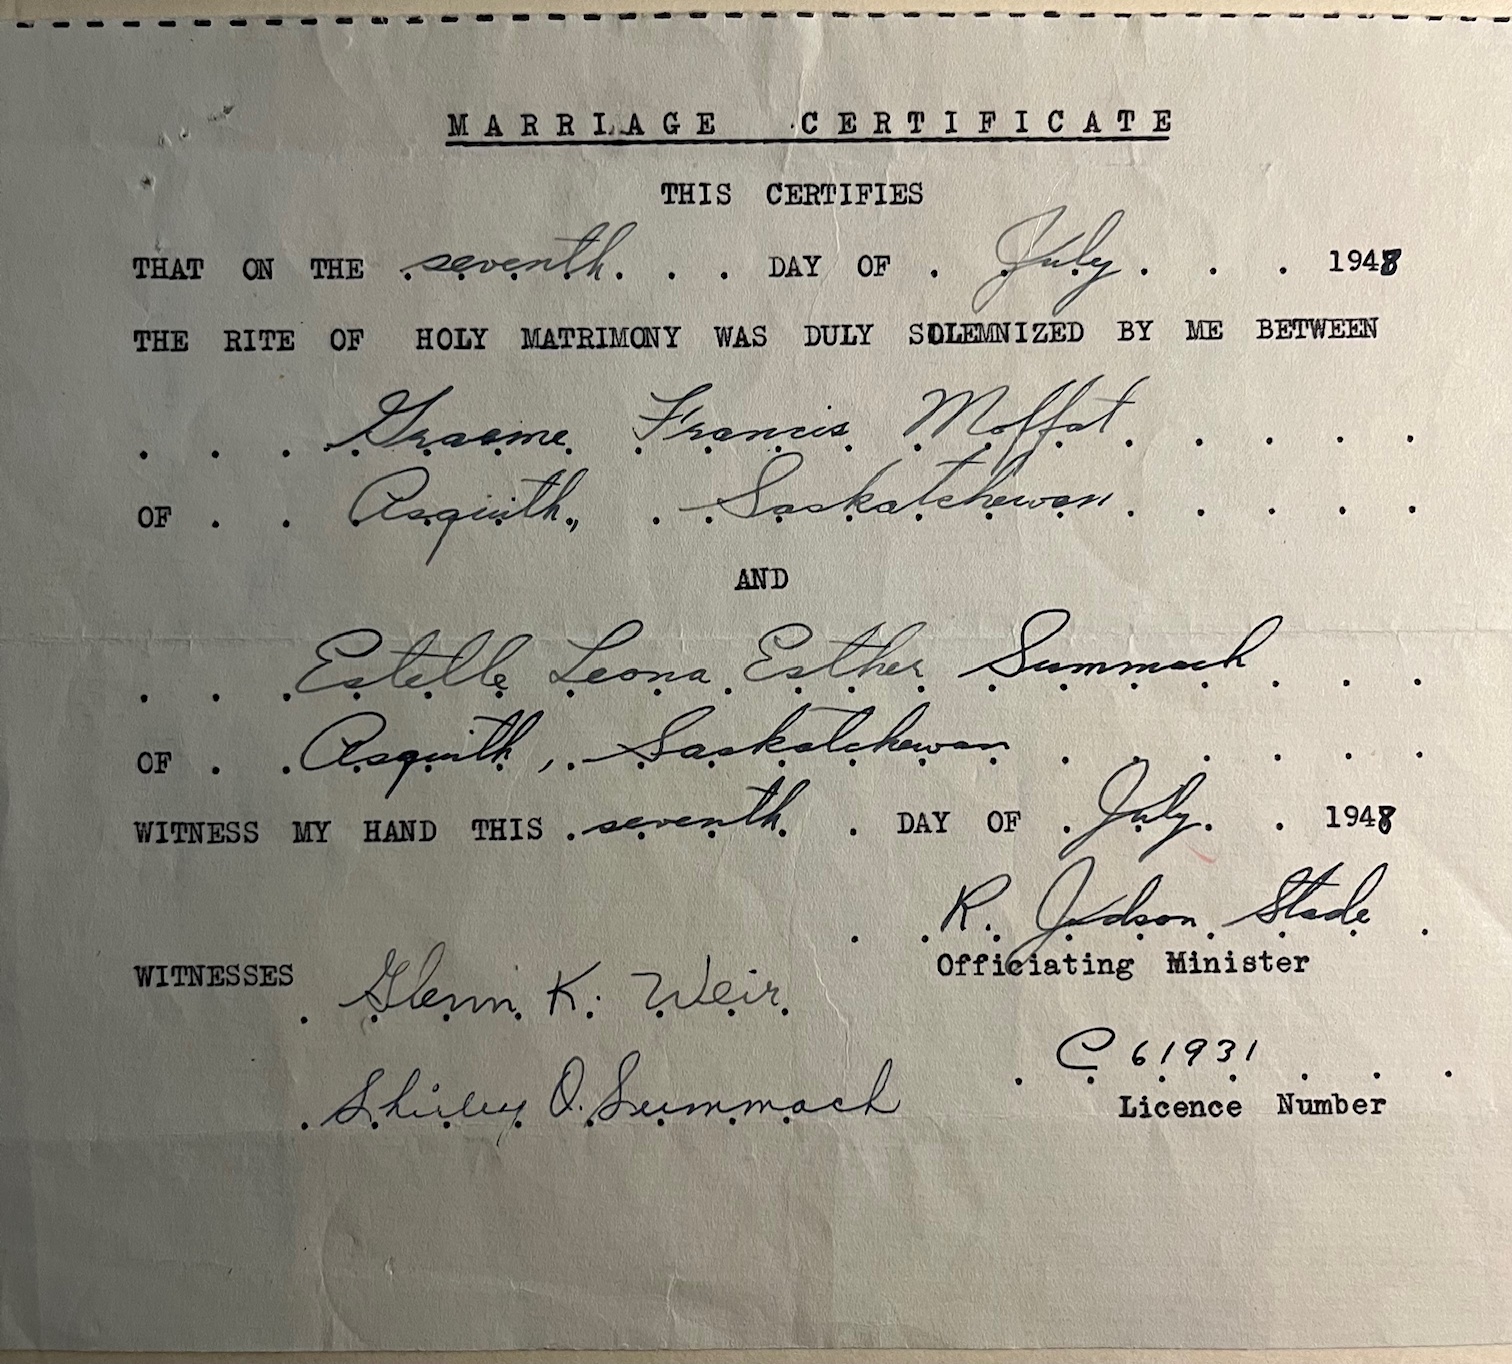 MARRIAGE CERTIFICATE
THIS CERTIFIES
THAT ON THE seventh . . . DAY OF . July . . . 1948
THE RITE OF HOLY MATRIMONY WAS DULY SOLEMNIZED BY ME BETWEEN
. . . Graeme Francis Moffat . . . . .
OF . . Asquith, . Saskatchewan . . . . .
AND
. . . Estelle Leona Esther Summach . . .
OF . . Asquith, . Saskatchewan . . . . . .
WITNESS MY HAND THIS . seventh . DAY OF . July . . 1948
. . R. Judson Stade .
Officiating Minister
WITNESSES . Glenn K. Weir
. C 61931 . . .
. Shirley O. Summach
Licence Number